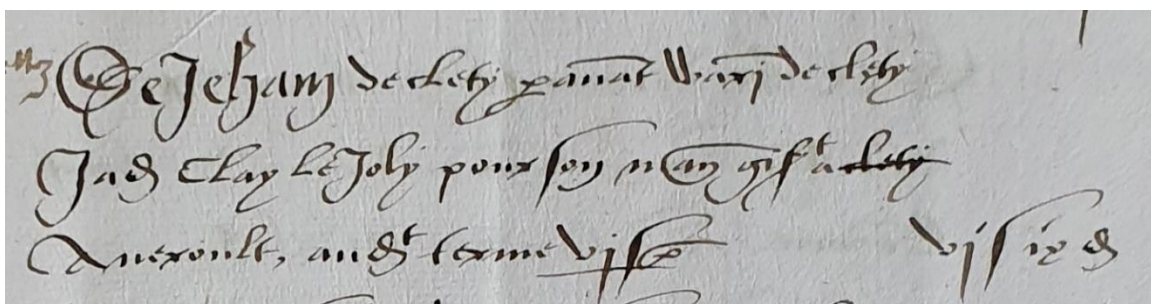 De Jehan de clety p avāt Warī de clety
Jad Clay le Joly pour son man gist a clety
Aueroult, aud t terme vj s p
vj s ix d